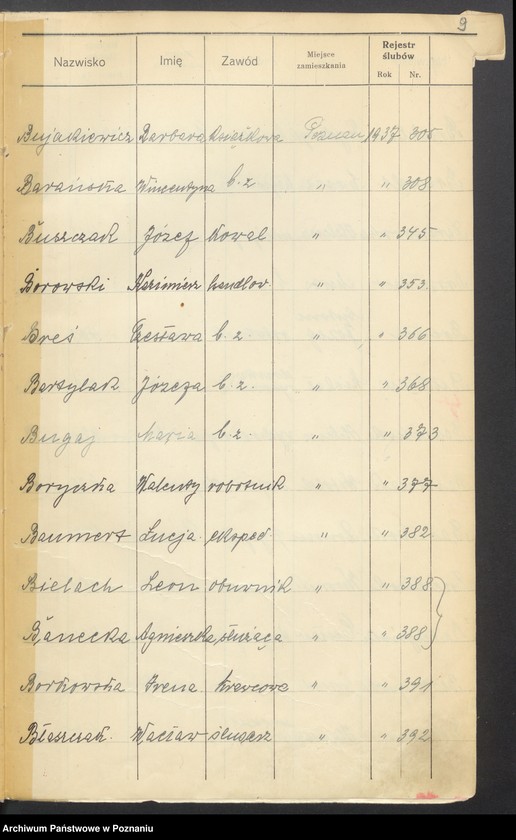 9
Nazwisko Imię Zawód Miejsce zamieszkania Rejestr ślubów Rok Nr.
Bujakiewicz Barbara Poznań 1937 305
Barańska Wincentyna b. z " " 308
Buszczak Józef Kowal " " 345
Borowski Kazimierz handlow. " " 353
Breś Czesława b. z. " " 366
Bartylak Józefa b. z. " " 368
Bugaj Maria b. z. " " 373
Boryczka Walenty robotnik " " 377
Baumert Lucja eksped " " 382
Bielach Leon obuwnik " " 388
Banecka Agnieszka służąca " " 388
Borkowska Irena krawcowa " " 391
Błaszczak Wacław ślusarz " " 392
Archiwum Państwowe w Poznaniu